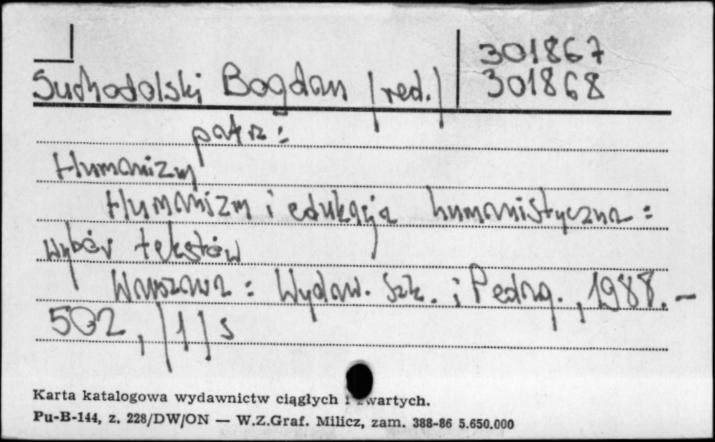 301867
Suchodolski Bogdan /red./ 301868
patrz:
Humanizm
Humanizm i edukacja humanistyczna :
wybór tekstów
Warszawa : Wydaw. Szk. i Pedag., 1988. -
502, /1/ s
Karta katalogowa wydawnictw ciągłych i zwartych.
Pu-B-144, z. 228/DW/ON — W.Z.Graf. Milicz, zam. 388-86 5.650.000